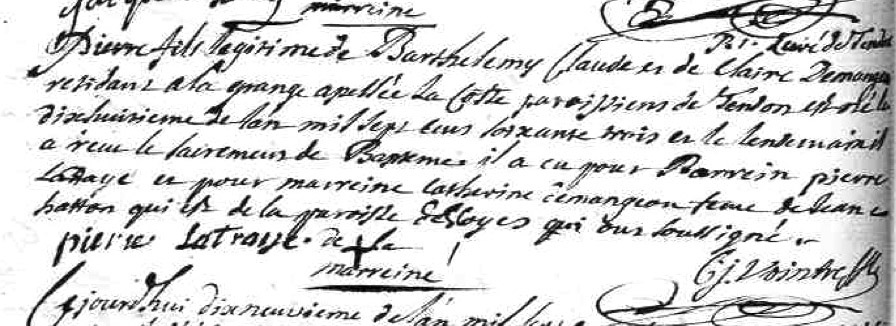 marreine
Pierre fils legitime de Barthelemy Claude et de Claire Demange
residant a la grange apellée la Coste paroissiens de Tendon est né le
dixhuitieme de lan mil sept cens soixante trois et le lendemain il
a recu le sacrement de Bapteme il a eu pour Parrein pierre
et pour marreine Catherine demangeon feme de Jean
hatton qui est de la paroisse qui ont soussigné.
pierre de la
marreine
Cejourd'hui dixneuvieme de l'an mil